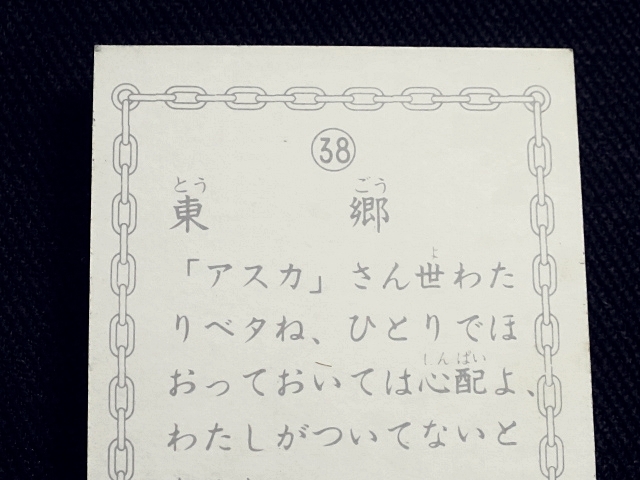 38
とう ごう
東 郷
「アスカ」さん世わた
よ
りベタね、ひとりでほ
おっておいては心配よ、
しんぱい
わたしがついてないと